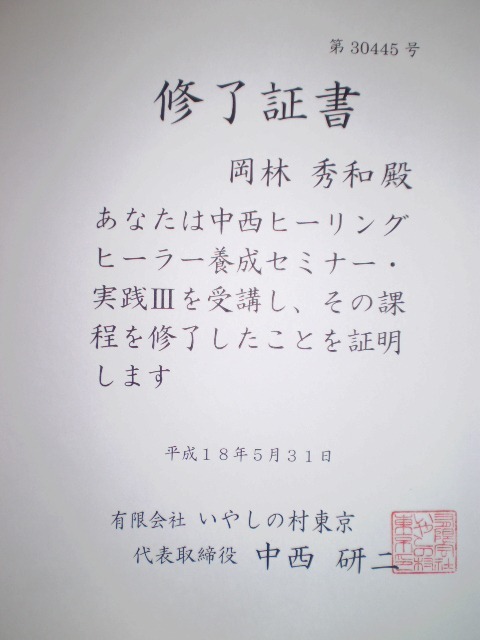 第30445号
修了証書
岡林 秀和殿
あなたは中西ヒーリング
ヒーラー養成セミナー・
実践Ⅲを受講し、その課
程を修了したことを証明
します
平成18年5月31日
有限会社 いやしの村東京
代表取締役 中西 研二